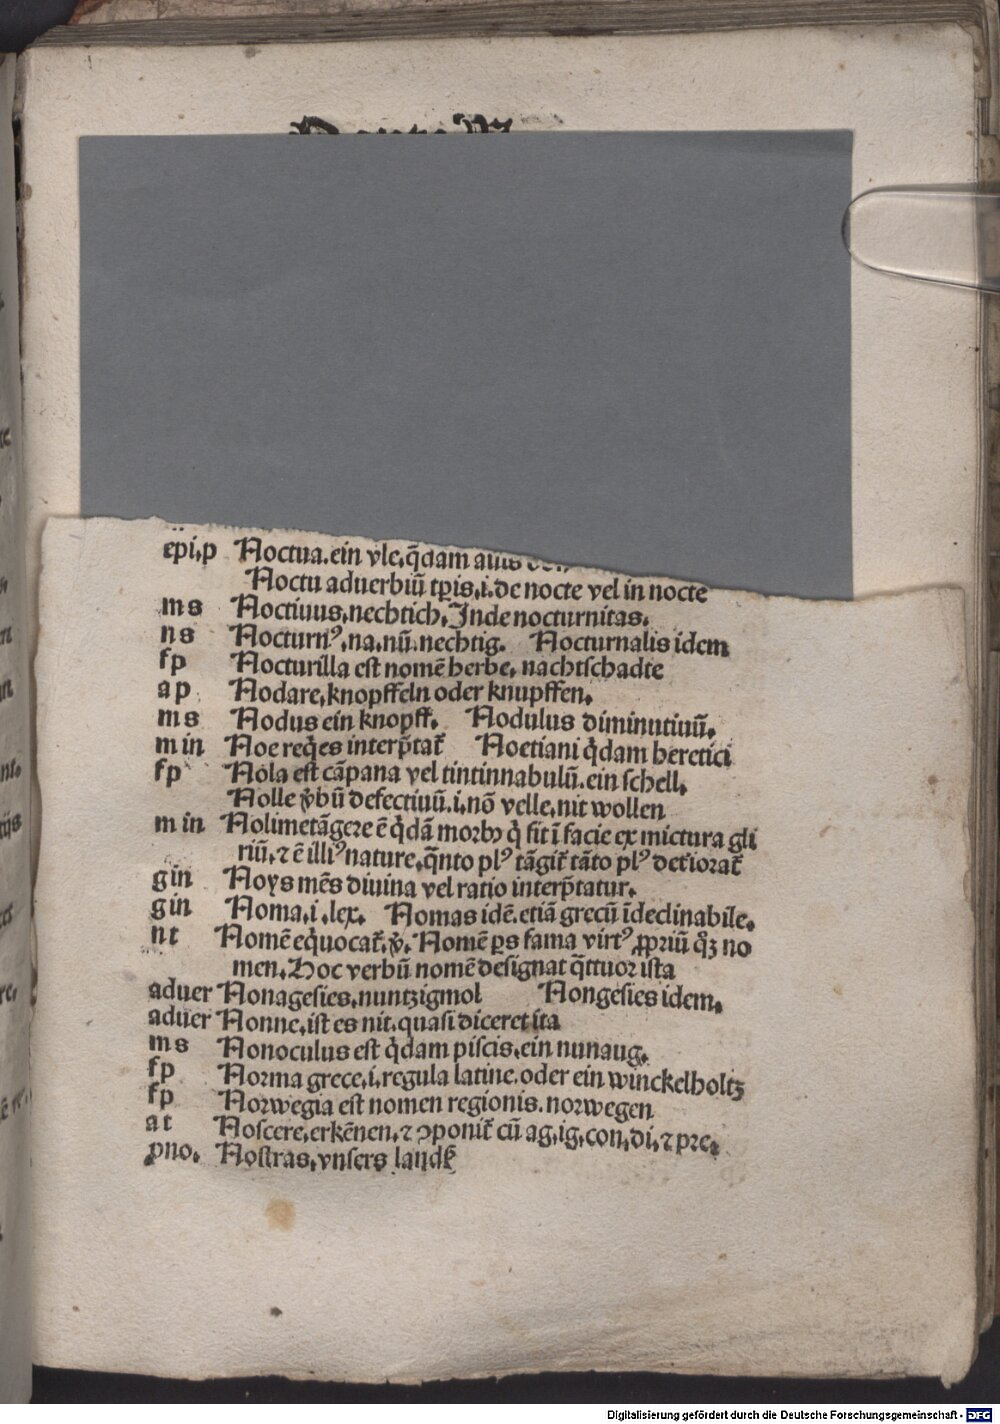 epi.p Noctua.ein vle.q̄dam auis
Noctu aduerbiū tp̄is.i.de nocte vel in nocte
m s Noctiuus.nechtich.Inde nocturnitas.
n s Nocturnꝰ.na.nū.nechtig. Nocturnalis idem
f p Nocturilla est nomē herbe. nachtschadte
a p Nodare.knopffeln oder knupffen.
m s Nodus ein knopff. Nodulus diminutiuū.
m in Noe reqͥes interp̄tat᷑ Noetiani qͥdam heretici
f p Nola est cāpana vel tintinnabulū.ein schell.
Nolle v̄bū defectiuū.i.nō velle.nit wollen
m in Nolimetāgere ē qͥdā morbꝰ qͥ fit ī facie ex mictura gli
riū.⁊ ē illiꝰ nature.q̄nto plꝰ tāgit᷑ tāto plꝰ det̄iorat᷑
g in Noys mēs diuina vel ratio interp̄tatur.
g in Noma.i.lex. Nomas idē.etiā grecū īdeclinabile.
n t Nomē eqͥuocat᷑.v̄. Nomē ꝑs fama virtꝰ ꝓpriū qͦꝫ no
men.Hoc verbū nomē designat q̄ttuor ista
aduer Nonagesies.nuntzigmol Nongesies idem.
aduer Nonne.ist es nit.quasi diceret ita
m s Nonoculus est qͥdam piscis.ein nunaug.
f p Norma grece.i.regula latine.oder ein winckelholtz
f p Norwegia est nomen regionis.norwegen
a t Noscere.erkēnen.⁊ ꝯponit᷑ cū ag.ig.con.di.⁊ pre.
pno. Nostras.vnsers landꝭ
Digitalisierung gefördert durch die Deutsche Forschungsgemeinschaft - DFG